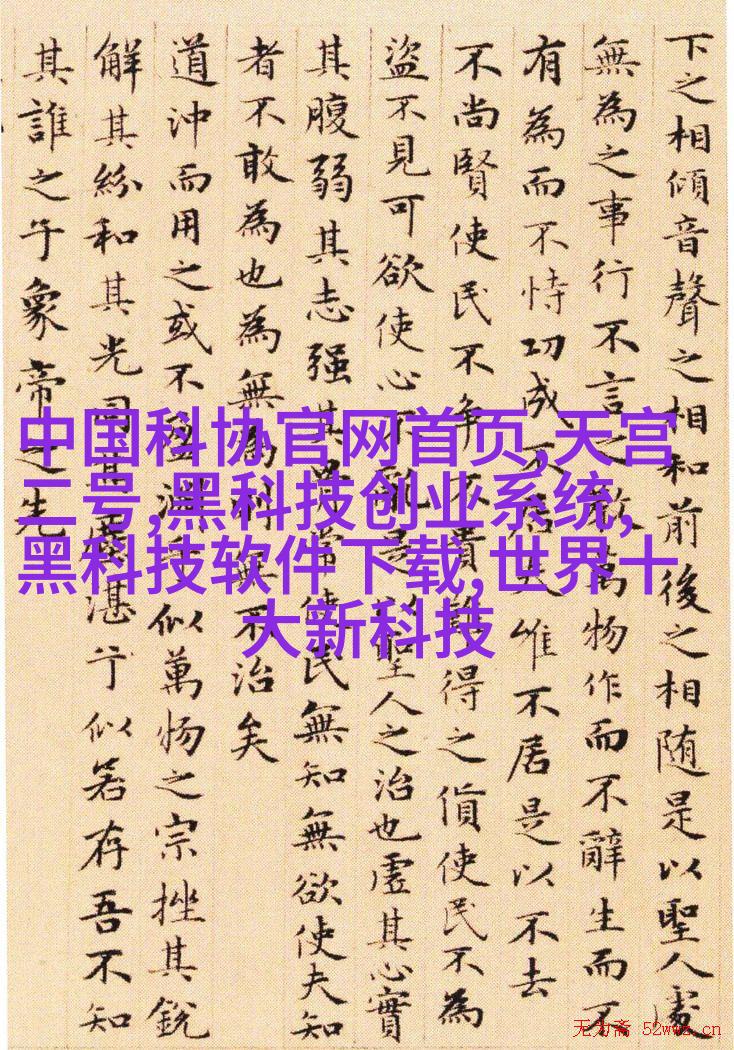 下之相傾音聲之相和前後之相随是以聖人處
無為之事行不言之教萬物作而不辭生而不
有為而不恃功成不居夫惟不居是以不去
不尚賢使民不争不貴難得之貨使民不為
盜不見可欲使心不亂是以聖人之治也虛其心實
其腹弱其志强其骨常使民無知無欲使夫知
者不敢為也為無為則無不治矣
道沖而用之或不盈淵乎似萬物之宗挫其銳
解其紛和其光同其塵湛兮似若存吾不知
其誰之子象帝之先
中国科协官网首页,天宫
二号,黑科技创业系统,
黑科技软件下载,世界十
大新科技
无为斋 52wwz.cn